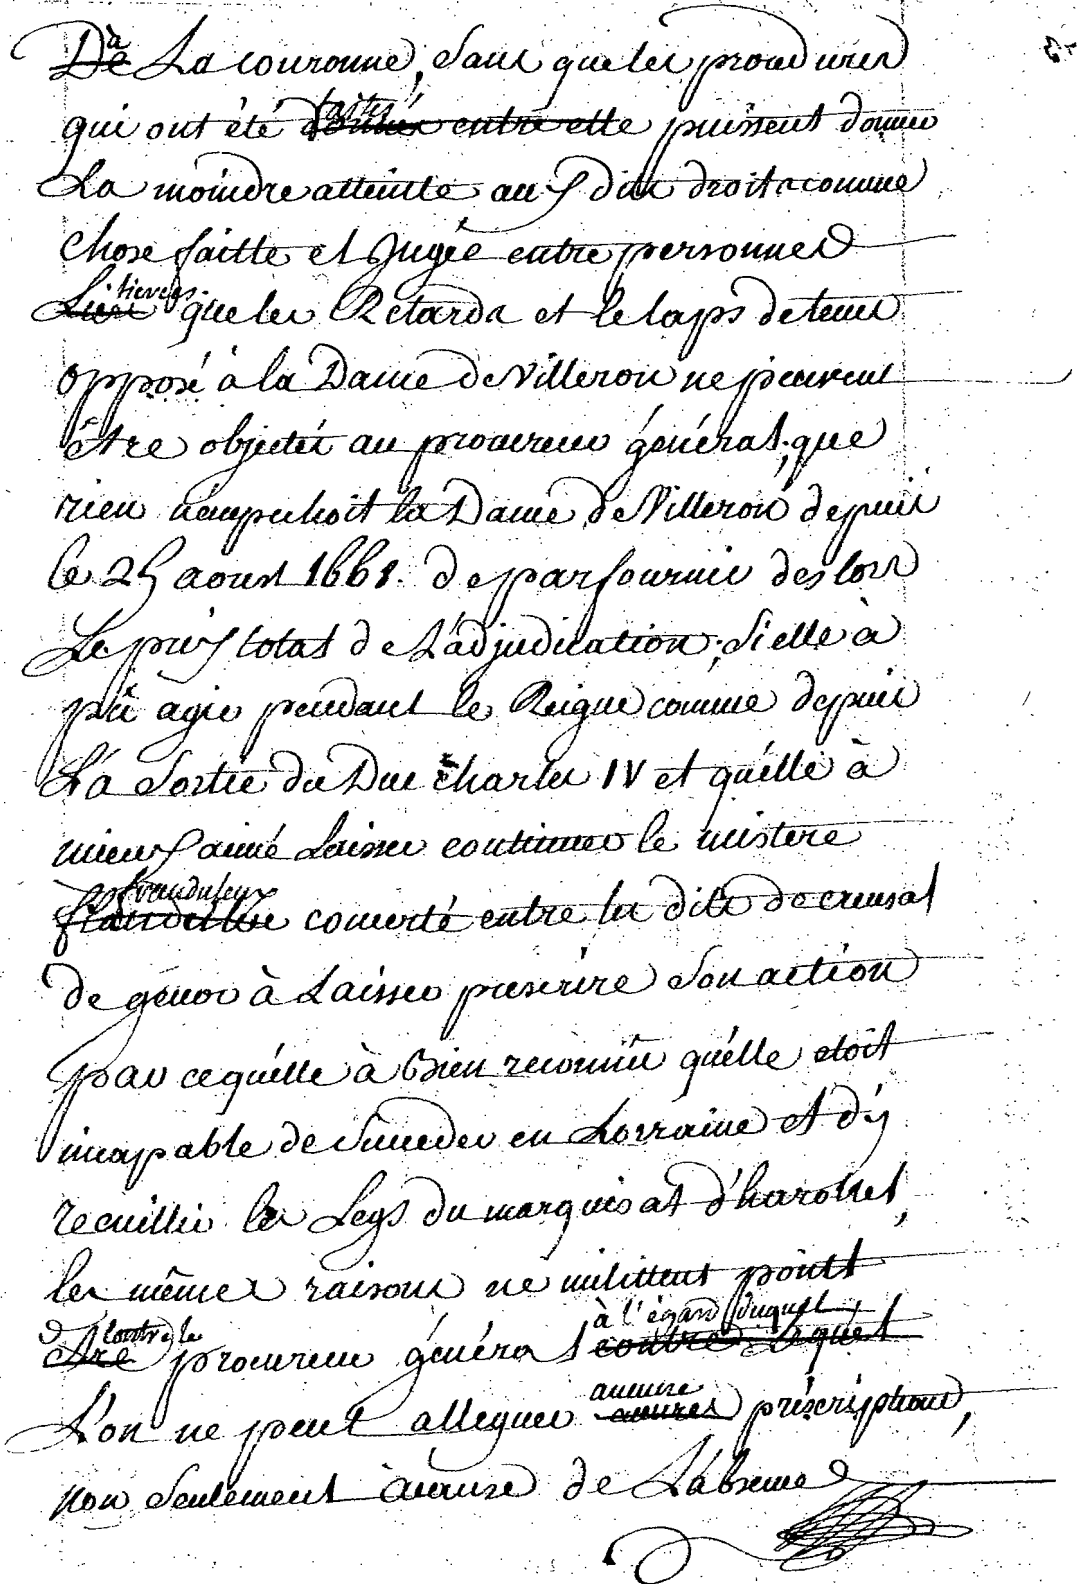 à La couronne, sans que les procedures
qui ont été faites puissent donner
La moindre atteinte aux dits droits comme
chose faitte et Jugée entre personnes
tierces. que les Retards et le laps de tems
opposé à la Dame de Villeron ne peuvent
être objectés au procureur général; que
rien n'empechoit la Dame de Villeron depuis
le 25 aoust 1661. de parfournir des lors
Le prix total de L'adjudication; si elle à
pû agir pendant le Reigne comme depuis
La Sortie du Duc Charles IV et qu'elle à
mieux aimé Laisser continuer le mistere
frauduleux concerté entre les dits de creusat
de genoc à Laisser prescrire Son action
par ce qu'elle à Bien reconnue qu'elle etoit
incapable de Succeder en Lorraine et d'y
recuillir les Legs du marquisat d'haroüel,
les mêmes raisons ne milittent points
contre le procureur général à l'égard duquel
L'on ne peut alleguer aucune préscriptions,
non Seulement acause de L'absence